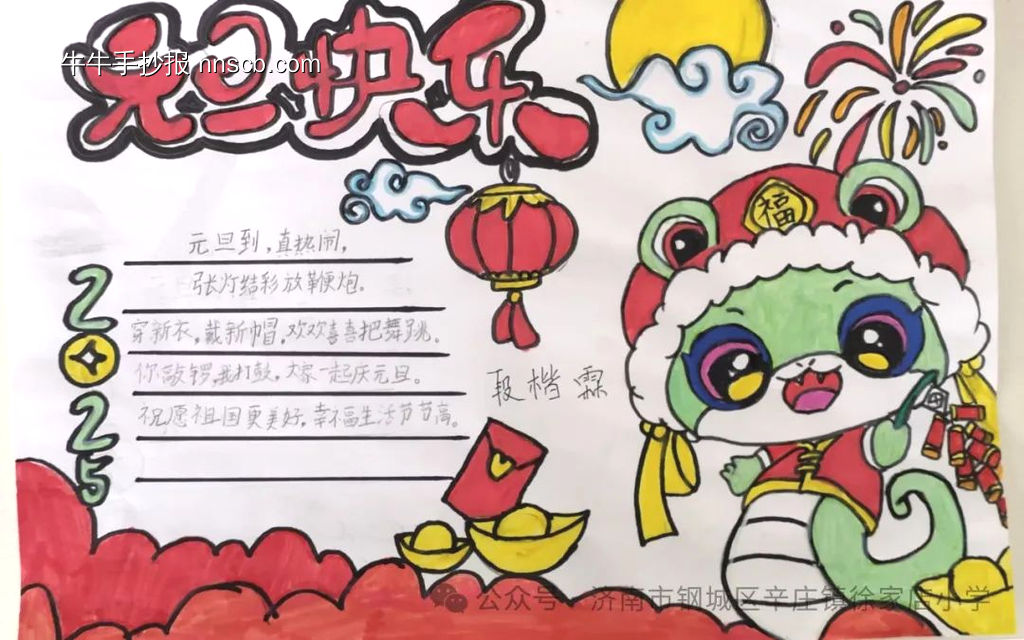 元旦快乐
牛牛手抄报 nnscb.com
福
元旦到，真热闹，
张灯结彩放鞭炮。
穿新衣，戴新帽，欢欢喜喜把舞跳。
你敲锣，我打鼓，大家一起庆元旦。
祝愿祖国更美好，幸福生活节节高。
2025
段楷霖
公众号·济南市钢城区辛庄镇徐家店小学